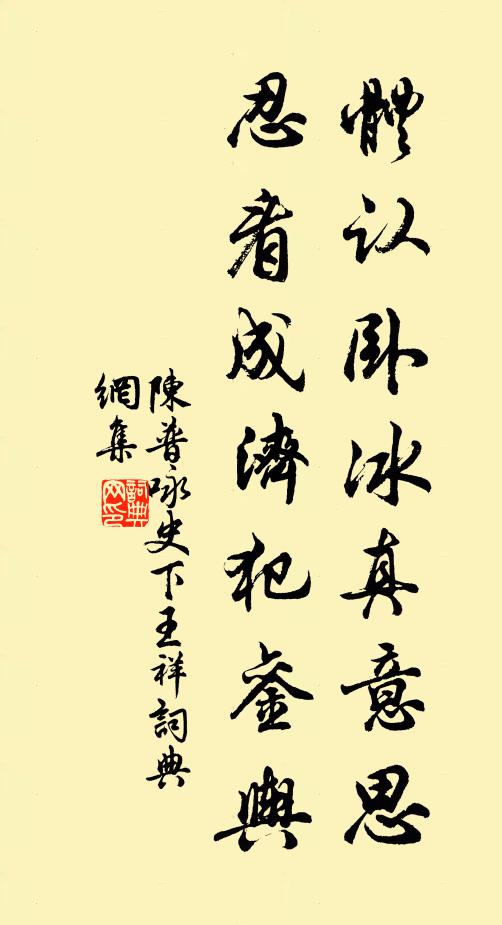 體认卧冰真意思
忍看成濟犯銮輿
陳普咏史下王祥詞典
網集
詞典
网印